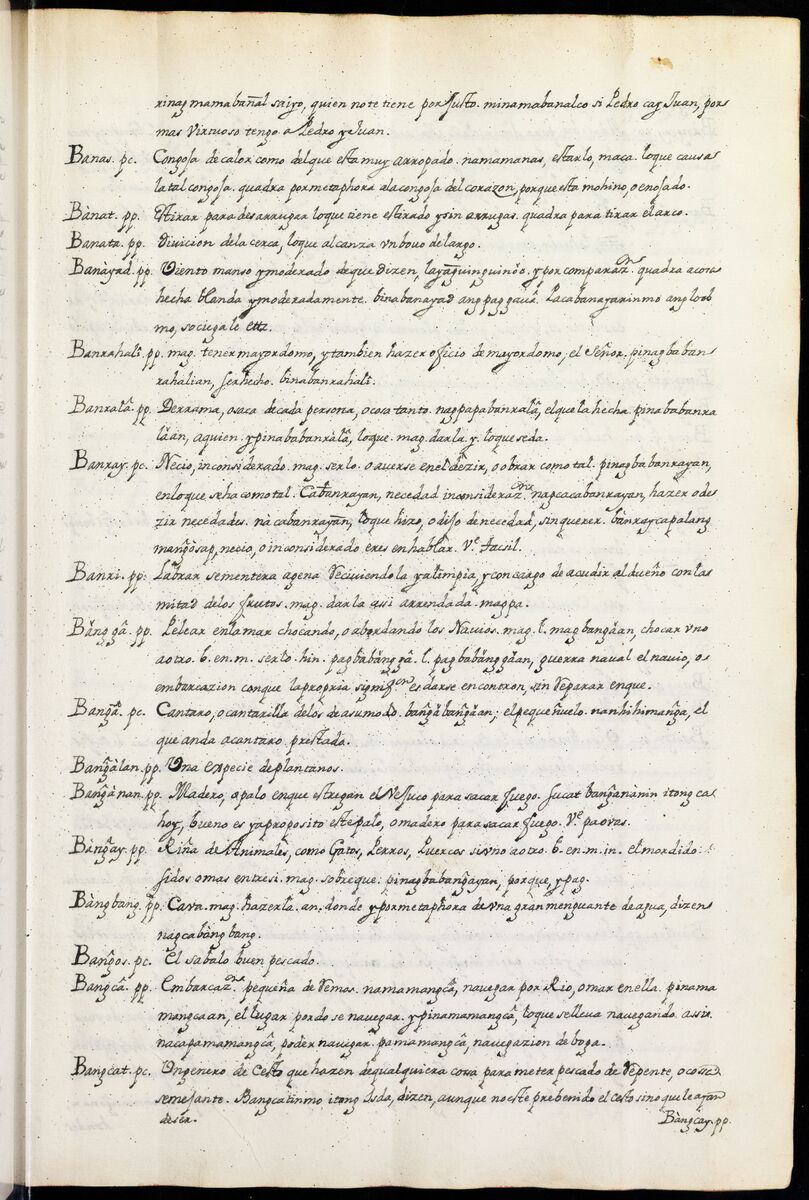 rinag mamabañal saiyo, quien note tiene por Justo. minamabanalco si Pedro cay Juan, por
mas virtuoso tengo a Pedro y Juan.
Banas. pc. Congosa de calor como del que esta muy arropado. namamanas, estarlo, maca. loque causa
la tal congosa. quadra por metaphora ala congosa del corazon, porque esta mohino, o enojado.
Bànat. pp. Estirar para desarrugar loque tiene estirado y sin arrugas. quadra para tirar el arco.
Banata. pp. diuicion dela cerca, loque alcanza vn bouo de largo.
Banàyad. pp. Viento manso y moderado deque dizen, layag̃ uinguinõo. y por comparazon. quadra a cosa
hecha blanda y moderadamente. binabanayad ang paggauâ. Pacabanayarinmo ang loob
mo, sociegale ettz.
Banrahalî. pp. mag. tener mayordomo, y tambien hazer oficio de mayordomo, el Señor. pinagbaban
rahalian, ser hecho. binabanrahalî.
Banralâ. pp. Derrama, o saca de cada persona, o cosa tanto. nagpapabanralâ, el que la hecha. pinababanra
làan, a quien. y pinababanràlâ, loque. mag. darla. y. loque se da.
Banray. pc. Necio, inconsiderado. mag. serlo. o auerse enel dezir, o obrar como tal. pinagbabanrayan,
enloque se ha como tal. Cabanrayan, necedad inconsiderazon. nagcacabanrayan, hazer o de
zir necedades. nàcabanrayan, loque hizo, o dijo de necedad, sin querer. bànraycapalang
mang̃osap, necio, o inconsiderado eres en hablar. Ve. tacsil.
Banri. pp. Labrar sementera agena reciuiendola ya limpia, y con cargo de acudir al dueño con la
mitad delos frutos. mag. darla assi arrendada. magpa.
Bãng gâ. pp. Pelear en la mar chocando, o abordando los Nauios. mag. l. mag bangãan, chocar vno
a otro. b. en. m. serlo. hin. pagbabãnggâ. l. pagbabãnggãan, guerra naual el nauio, o
embarcazion conque la propria signifon. es darse encontron, sin reparar en que.
Bang̃â. pc. Cantaro, o cantarilla delos de a su modo. bang̃abang̃aan; el pequeñuelo. nanhihimang̃a, el
que anda a cantaro prestado.
Bang̃àlan. pp. Vna especie de plantanos.
Bang̃ànan. pp. Madero, o palo enque estregan el vejuco para sacar fuego. sucat bang̃anànin itong ca
hoy, bueno es y aproposito este palo, o madero para sacar fuego. Ve. paovas.
Bàng̃ay. pp. Riña de Animales, como Gatos, Perros, Puercos si vno a otro. b. en. m. in. el mordido:
si dos o mas entresi. mag. sobreque: pinagbabang̃ayan, porque, ypag.
Bàngbang. pp. Caua. mag. hazerla. an. donde y por metaphora de vna gran menguante de agua, dizen
nagcabàngbang.
Bang̃os. pc. El sabalo buen pescado.
Bangcâ. pp. Embarcazon. pequeña de remos. namamangcâ, nauegar por Rio, o mar en ella. pinama
mangcaan, el lugar por do se nauegar. y pinamamangcâ, loque se lleua nauegando. assi.
nacapamamangcâ, poder nauegar. pamamangcâ, nauegazion de boga.
Bangcat. pc. Vn genero de Cesto que hazen de qualquiera cosa para meter pescado de repente, o cosa
semejante. Bangcatinmo itong Isda, dizen, aunque no este prebenido el cesto sino que le ayan
de ser.
Bàngcay. pp.